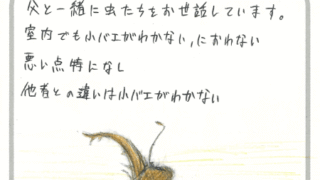 父と一緒に虫たちをお世話しています。
室内でも小バエがわかない,におわない
悪い点特になし
他者との違いは小バエがわかない